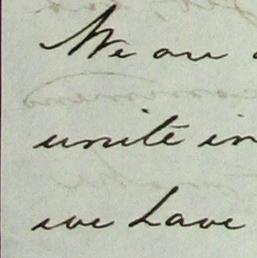 We are
unite in
we have